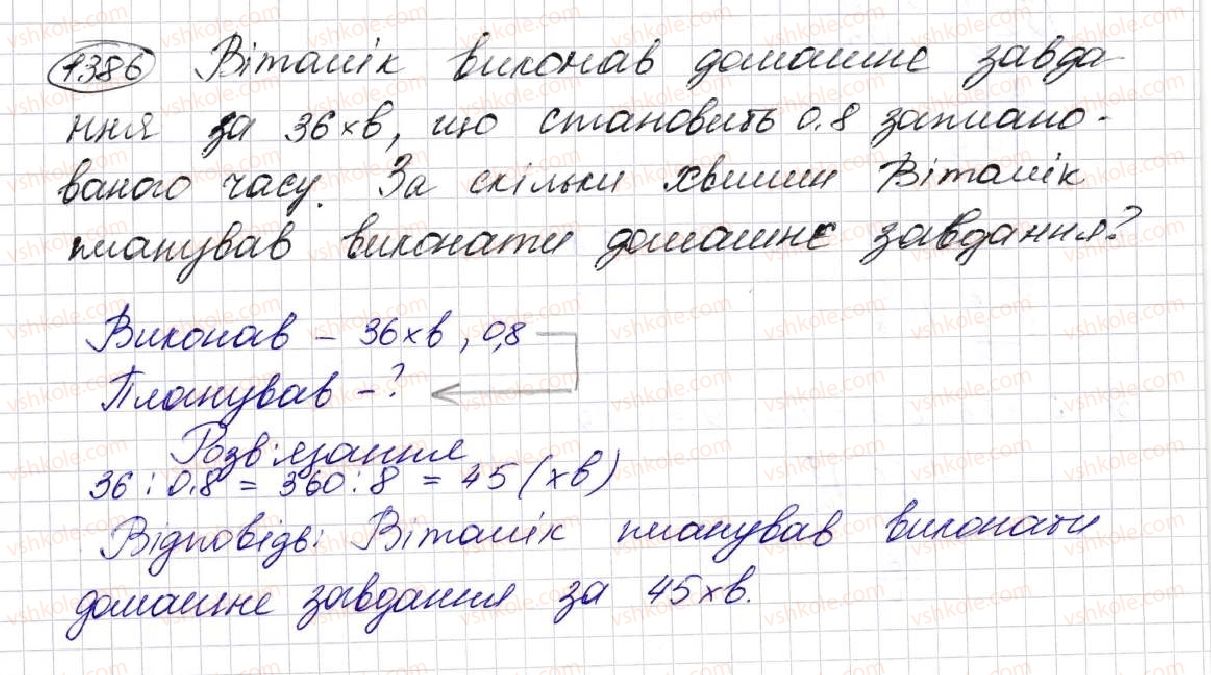 1386 Віталік виконав домашнє завда-
ння за 36 хв, що становить 0.8 заплано-
ваного часу. За скільки хвилин Віталік
планував виконати домашнє завдання?
Виконав – 36 хв, 0,8
Планував – ?
Розв'язання
36 : 0.8 = 360 : 8 = 45 (хв)
Відповідь: Віталік планував виконати
домашнє завдання за 45 хв.